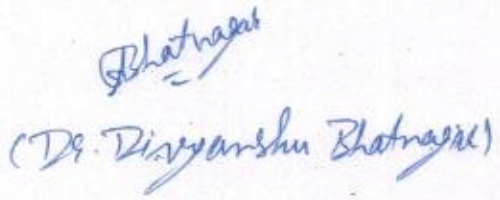 Bhatnagar
(Dr. Divyanshu Bhatnagar)